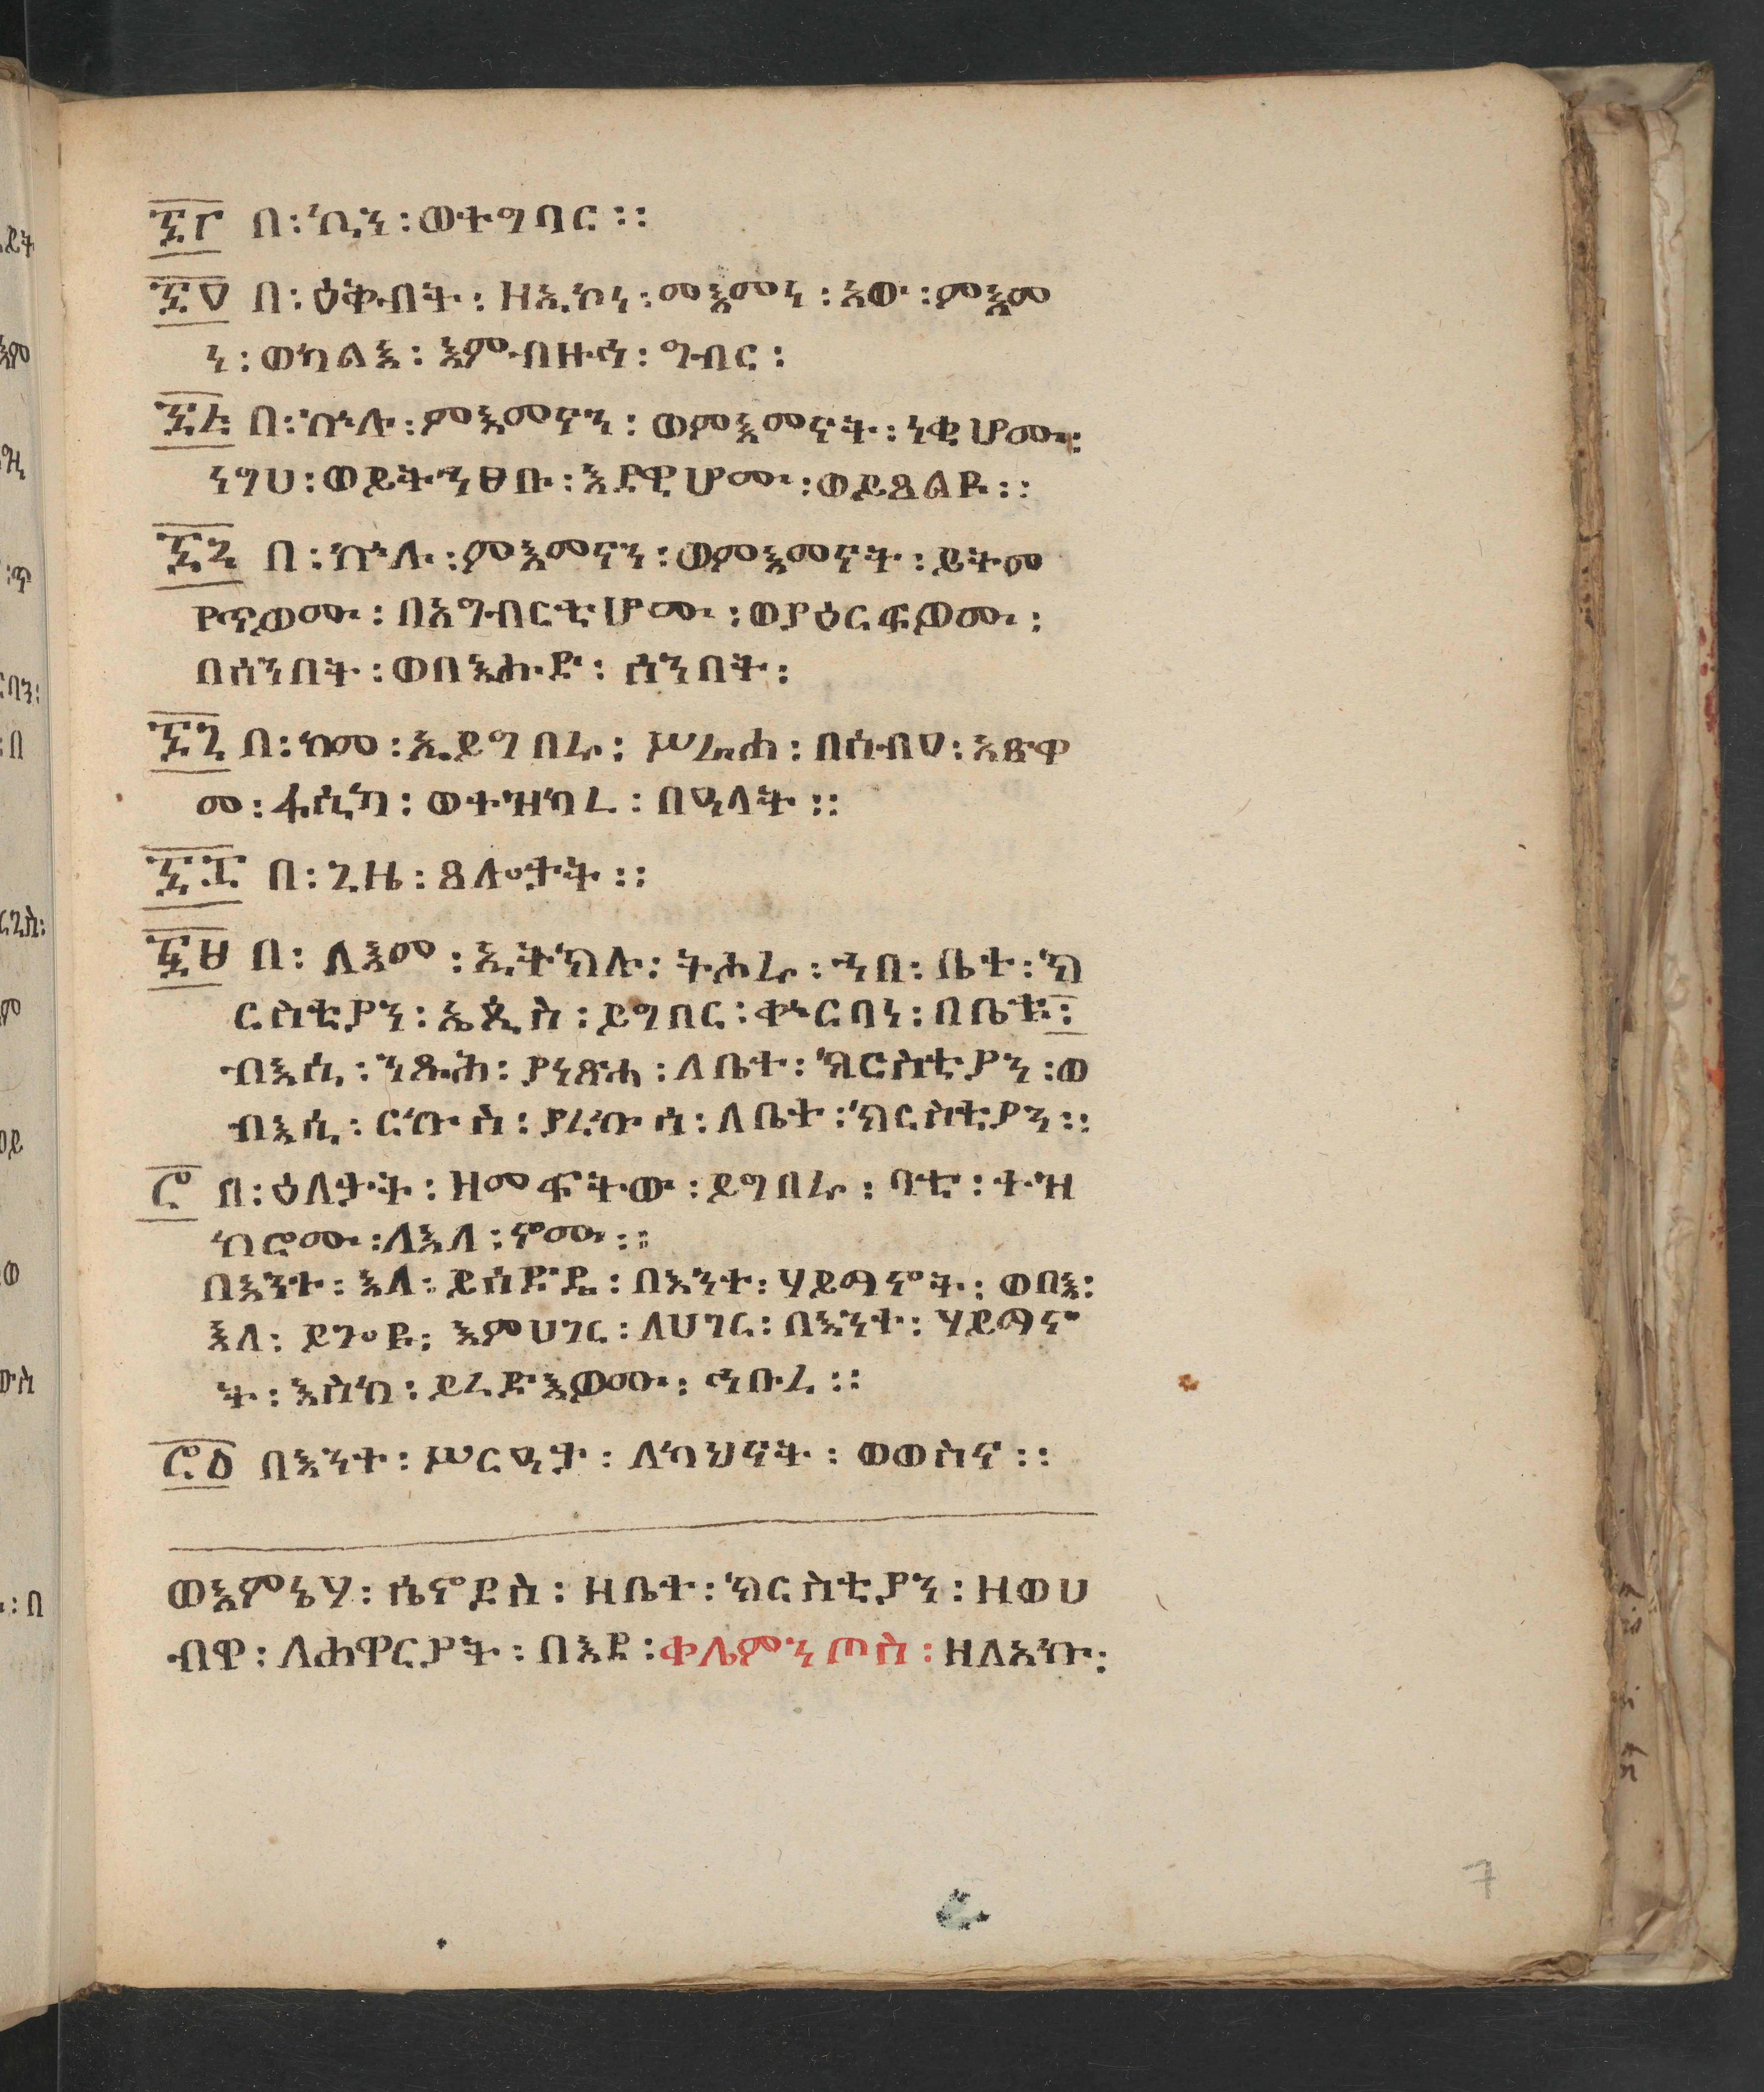 ፺፫ በ፡ ኪን፡ ወተግባር፡፡
፺፬ በ፡ ዕቅብት፡ ዘኢኮነ፡ መእመነ፡ አው፡ ምእመ
ነ፡ ወካልእ፡ እምብዙኅ፡ ግብር፡
፺፭ በ፡ ኵሉ፡ ምእመናን፡ ወምእመናት፡ ነቂሆሙ፡
ነግህ፡ ወይትኀፀቡ፡ እደዊሆሙ፡ ወይጸልዩ፡፡
፺፮ በ፡ ኵሉ፡ ምእመናን፡ ወምእመናት፡ ይትመ
የጥዎሙ፡ በአግብርቲሆሙ፡ ወያዕርፍዎሙ፡
በሰንበት፡ ወበእሑድ፡ ሰንበት፡
፺፯ በ፡ ከመ፡ ኢይግበሩ፡ ሥራሐ፡ በሰብዐ፡ እጽዋ
መ፡ ፋሲካ፡ ወተዝካረ፡ በዓላት፡፡
፺፰ በ፡ ጊዜ፡ ጸሎታት፡፡
፺፱ በ፡ ለእመ፡ ኢትክሉ፡ ትሕሩ፡ ኀበ፡ ቤተ፡ ክ
ርስቲያን፡ ኤጲስ፡ ይግበር፡ ቍርባነ፡ በቤቱ፡
ብእሲ፡ ንጹሕ፡ ያነጽሐ፡ ለቤተ፡ ክርስቲያን፡ ወ
ብእሲ፡ ርኩስ፡ ያረኩሰ፡ ለቤተ፡ ክርስቲያን፡፡
፻ በ፡ ዕለታት፡ ዘመፍትው፡ ይግበሩ፡ ባቲ፡ ተዝ
ካሮሙ፡ ለእለ፡ ኖሙ፡፡
በእንተ፡ እለ፡ ይሰድዱ፡ በእንተ፡ ሃይማኖት፡ ወበእ፡
እለ፡ ይጐዩ፡ እምሀገር፡ ለሀገር፡ በእንተ፡ ሃይማኖ
ት፡ እስከ፡ ይረድእዎሙ፡ ኅቡረ፡፡
፻፩ በእንተ፡ ሥርዓታ፡ ለካህናት፡ ወወስና፡፡
ወእምኔሃ፡ ሲኖዶስ፡ ዘቤተ፡ ክርስቲያን፡ ዘወሀ
ብዋ፡ ለሐዋርያት፡ በእደ፡ ቀሌምንጦስ፡ ዘለአኩ፡
7